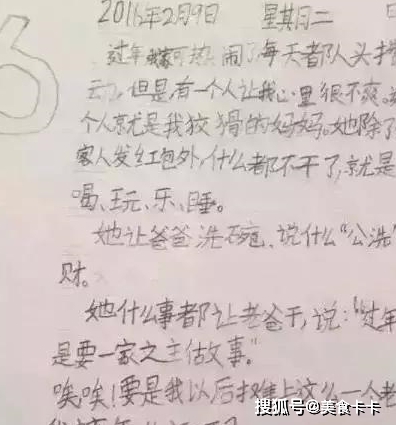 2016年2月9日 星期二
过年我家可热闹了,每天都队头
云,但是,有一个人让我心里很不爽。
个人就是我狡猾的妈妈。她除了
家人发红包外,什么都不干了,就是
喝、玩、乐、睡。
她让爸爸洗碗,说什么“公洗”
财。
她什么事都让老爸干,说:“过年
是要一家之主做故事。”
唉,唉!要是我以后摊上这么一个老
搜狐号@美食卡卡